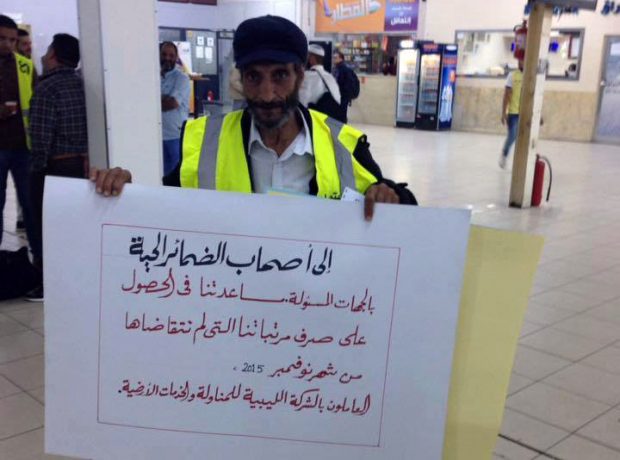 المطار
إلى أصحاب الضمائر الحية
بالجهات المسؤلة.. مساعدتنا في الحصول
على صرف مرتباتنا التى لم نتقاضاها
من شهر نوفمبر 2015 .
العاملون بالشركة الليبية للمناولة والخدمات الأرضية.